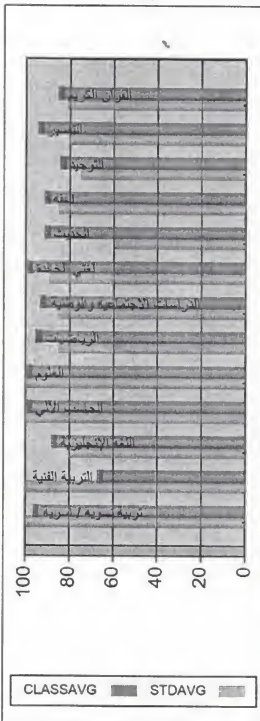 القرآن الكريم
التفسير
التوحيد
الفقه
الحديث
لغتي الخالدة
الدراسات الاجتماعية والوطنية
الرياضيات
العلوم
الحاسب الآلي
اللغة الإنجليزية
التربية الفنية
تربية أسرية / أسرية
100
80
60
40
20
0
CLASSAVG
STDAVG